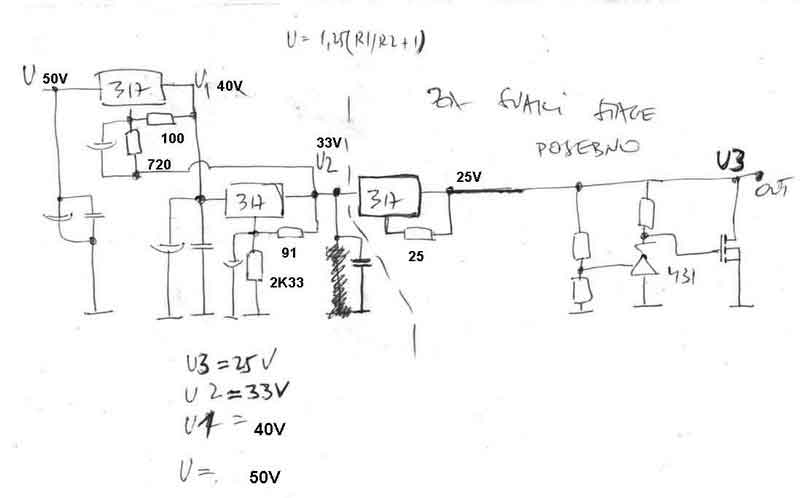 U = 1,25(R1/R2+1)
U 50V
317
U1 40V
100
720
ZA SVAKI STAGE
POSEBNO
33V
U2
317
91
2K33
317
25V
25
U3
OUT
431
U3 = 25V
U2 = 33V
U1 = 40V
U = 50V